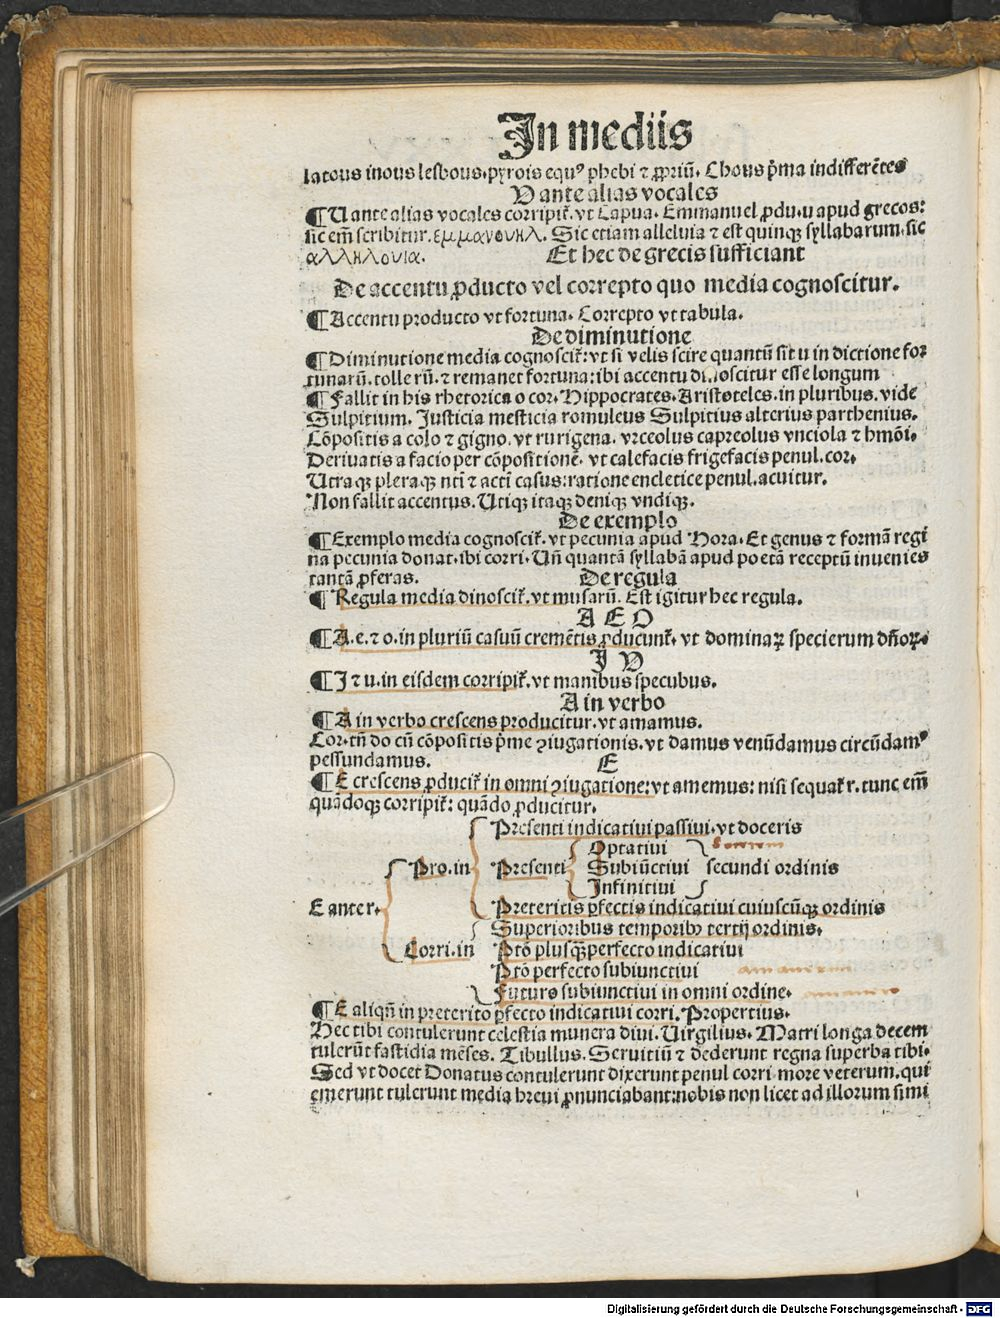 In mediis
latous inous lesbous. pyrois equꝰ phebi ⁊ ꝓpriū. Chous p̄ma indifferētes
V ante alias vocales
¶ U ante alias vocales corripit̄. vt Capua. Emmanuel ꝓdu. u apud grecos:
sic em̄ scribitur. εμμανουηλ. Sic etiam alleluia ⁊ est quinqꝫ syllabarum. sic
αλληλουια. Et hec de grecis sufficiant
De accentu ꝓducto vel correpto quo media cognoscitur.
¶ Accentu producto vt fortuna. Correpto vt tabula.
De diminutione
¶ Diminutione media cognoscit̄: vt si velis scire quantū sit u in dictione for
tunarū. tolle rū. ⁊ remanet fortuna: ibi accentu dinoscitur esse longum
¶ Fallit in his rhetorica o cor. Hippocrates. Aristoteles. in pluribus. vide
Sulpitium. Justicia mesticia romuleus Sulpitius alterius parthenius.
Cōpositis a colo ⁊ gigno. vt rurigena. vrceolus capreolus vnciola ⁊ hmōi.
Deriuatis a facio per cōpositionē. vt calefacis frigefacis penul. cor.
Utraqꝫ pleraqꝫ nt̄i ⁊ act̄i casus: ratione encletice penul. acuitur.
Non fallit accentus. Utiqꝫ itaqꝫ deniqꝫ vndiqꝫ.
De exemplo
¶ Exemplo media cognoscit̄. vt pecunia apud Hora. Et genus ⁊ formā regi
na pecunia donat. ibi corri. Un̄ quantā syllabā apud poetā receptū inuenies
tantā ꝓferas. De regula
¶ Regula media dinoscit̄. vt musarū. Est igitur hec regula.
A E O
¶ A. e. ⁊ o. in pluriū casuū cremētis ꝓducunt̄. vt dominaꝝ specierum dn̄oꝝ.
I V
¶ I ⁊ u. in eisdem corripit̄. vt manibus specubus.
A in verbo
¶ A in verbo crescens producitur. vt amamus.
Cor. tn̄ do cū cōpositis p̄me ꝯiugationis. vt damus venūdamus circūdamꝰ
pessundamus. E
¶ E crescens ꝓducit̄ in omni ꝯiugatione: vt amemus: nisi sequat̄ r. tunc em̄
quādoqꝫ corripit̄: quādo ꝓducitur.
Presenti indicatiui passiui. vt doceris
Optatiui
Pro. in Presenti Subiūctiui secundi ordinis
Infinitiui
E ante r. Preteritis ꝑfectis indicatiui cuiuscūqꝫ ordinis
Superioribus temporibꝫ tertij ordinis.
Corri. in Ptō plusqꝫperfecto indicatiui
Ptō perfecto subiunctiui
Futuro subiunctiui in omni ordine.
¶ E aliqn̄ in preterito ꝑfecto indicatiui corri. Propertius.
Hec tibi contulerunt celestia munera diui. Uirgilius. Matri longa decem
tulerūt fastidia mēses. Tibullus. Seruitiū ⁊ dederunt regna superba tibi.
Sed vt docet Donatus contulerunt dixerunt penul corri more veterum. qui
emerunt tulerunt media breui ꝓnunciabant: nobis non licet ad illorum simi
Digitalisierung gefördert durch die Deutsche Forschungsgemeinschaft - DFG